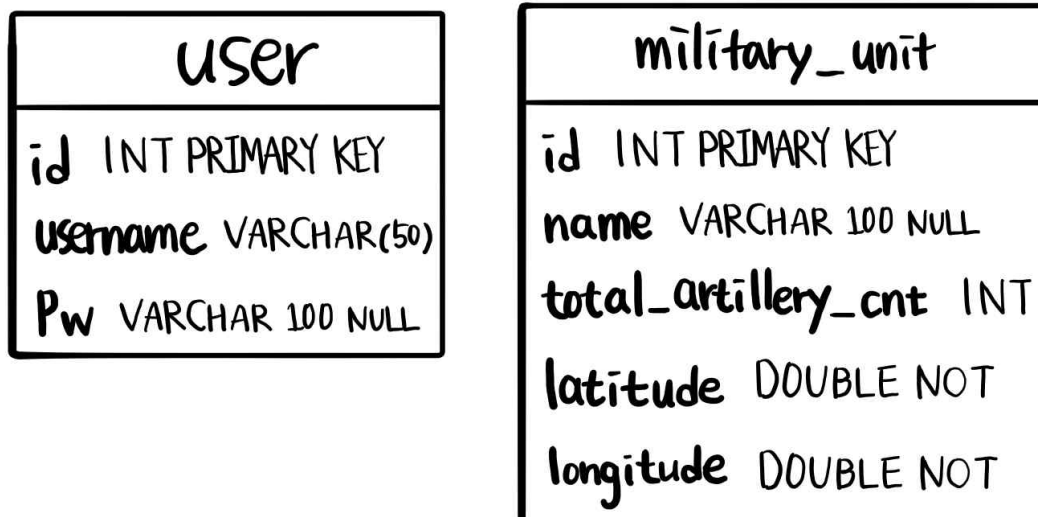 user
id INT PRIMARY KEY
username VARCHAR(50)
Pw VARCHAR 100 NULL
military_unit
id INT PRIMARY KEY
name VARCHAR 100 NULL
total_artillery_cnt INT
latitude DOUBLE NOT
longitude DOUBLE NOT